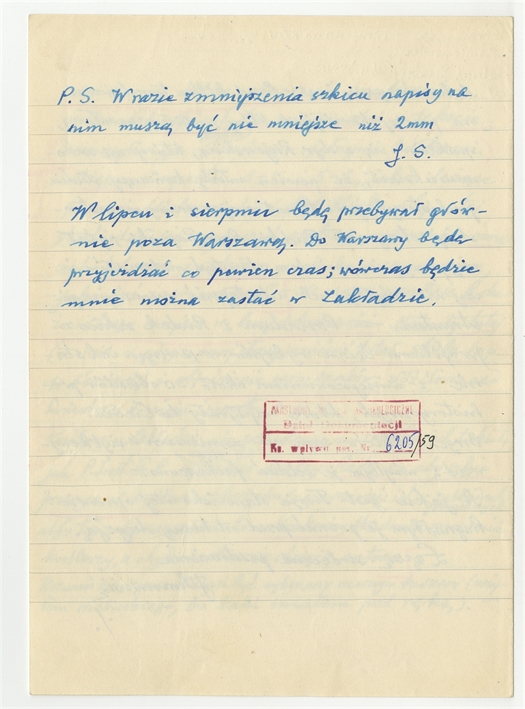 P.S. W razie zmniejszenia szkicu napisy na
nim muszą być nie mniejsze niż 2mm
J. S.
W lipcu i sierpniu będę przebywał głów-
nie poza Warszawą. Do Warszawy będę
przyjeżdżać co pewien czas; wówczas będzie
mnie można zastać w Zakładzie.
ARCHEOLOGICZNE
Dział Dokumentacji
Ks. wpływu poz. Nr. 6205/59